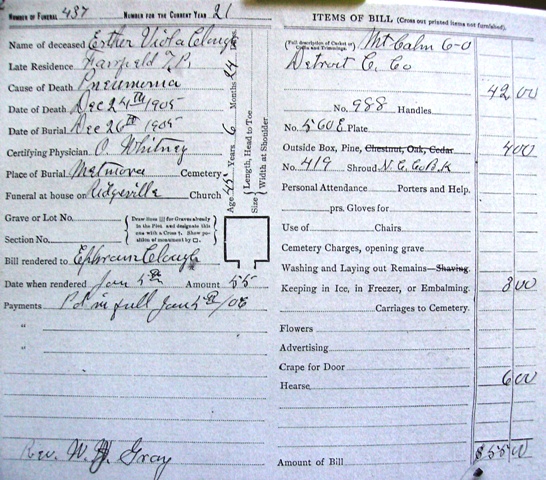 NUMBER OF FUNERAL 437 NUMBER FOR THE CURRENT YEAR 21
Name of deceased Esther Viola Clough
Late Residence Fairfield T.P.
Cause of Death Pneumonia
Date of Death Dec 24th 1905
Date of Burial Dec 26th 1905
Certifying Physician O. Whitney
Place of Burial Cemetery
Funeral at house or Ridgeville Church
Age Years 6 Months 24
Size { Length, Head to Toe
Width at Shoulder
Grave or Lot No.
Section No.
{ Draw lines for Graves already in the Plot and designate this one with a Cross †. Show position of monument by □. }
Bill rendered to Ephraim Clough
Date when rendered Jan 5th Amount 55
Payments Pd in full Jan 5th/06
"
"
Rev. W. Gray
ITEMS OF BILL (Cross out printed items not furnished).
(Full description of Casket or Coffin and Trimmings.) Mt Calm 6-0
Detroit C. Co
42 00
No. 988 Handles
No. 560E Plate
Outside Box, Pine, Chestnut, Oak, Cedar 4 00
No. 419 Shroud
Personal Attendance Porters and Help.
prs. Gloves for
Use of Chairs
Cemetery Charges, opening grave
Washing and Laying out Remains—Shaving.
Keeping in Ice, in Freezer, or Embalming. 3 00
Carriages to Cemetery.
Flowers
Advertising
Crape for Door
Hearse 6 00
Amount of Bill $55 00